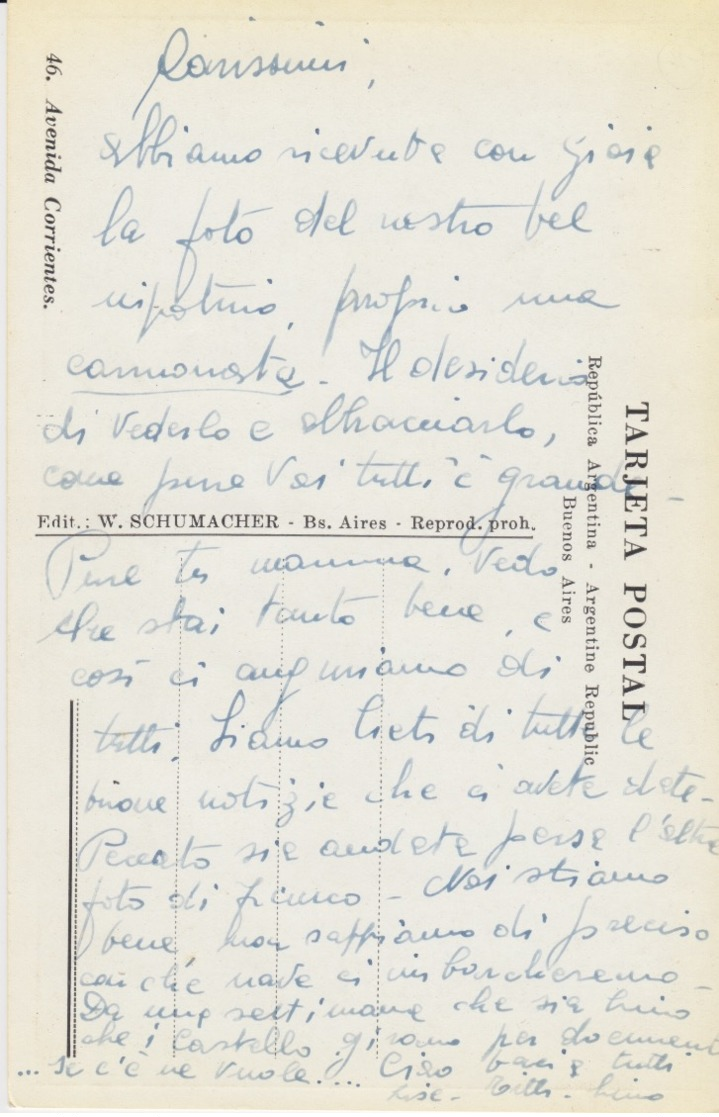 Carissimi,
abbiamo ricevuta con gioia
la foto del nostro bel
nipotino, proprio una
cannonata. Il desiderio
di vederlo e abbracciarlo,
come pure Voi tutti è grande -
Pure tu mamma, vedo
che stai tanto bene, e
così ci auguriamo di
tutti. Siamo lieti di tutte le
buone notizie che ci avete date -
Peccato sia andata persa l'altra
foto di franco - Noi stiamo
bene, non sappiamo di preciso
con che nave ci imbarcheremo -
Da una settimana che sia Lino
che i Castello girano per documenti
... se c'è ne vuole.... Ciao baci a tutti
Lino
46. Avenida Corrientes.
Edit.: W. SCHUMACHER - Bs. Aires - Reprod. proh.
TARJETA POSTAL
República Argentina - Argentine Republic
Buenos Aires